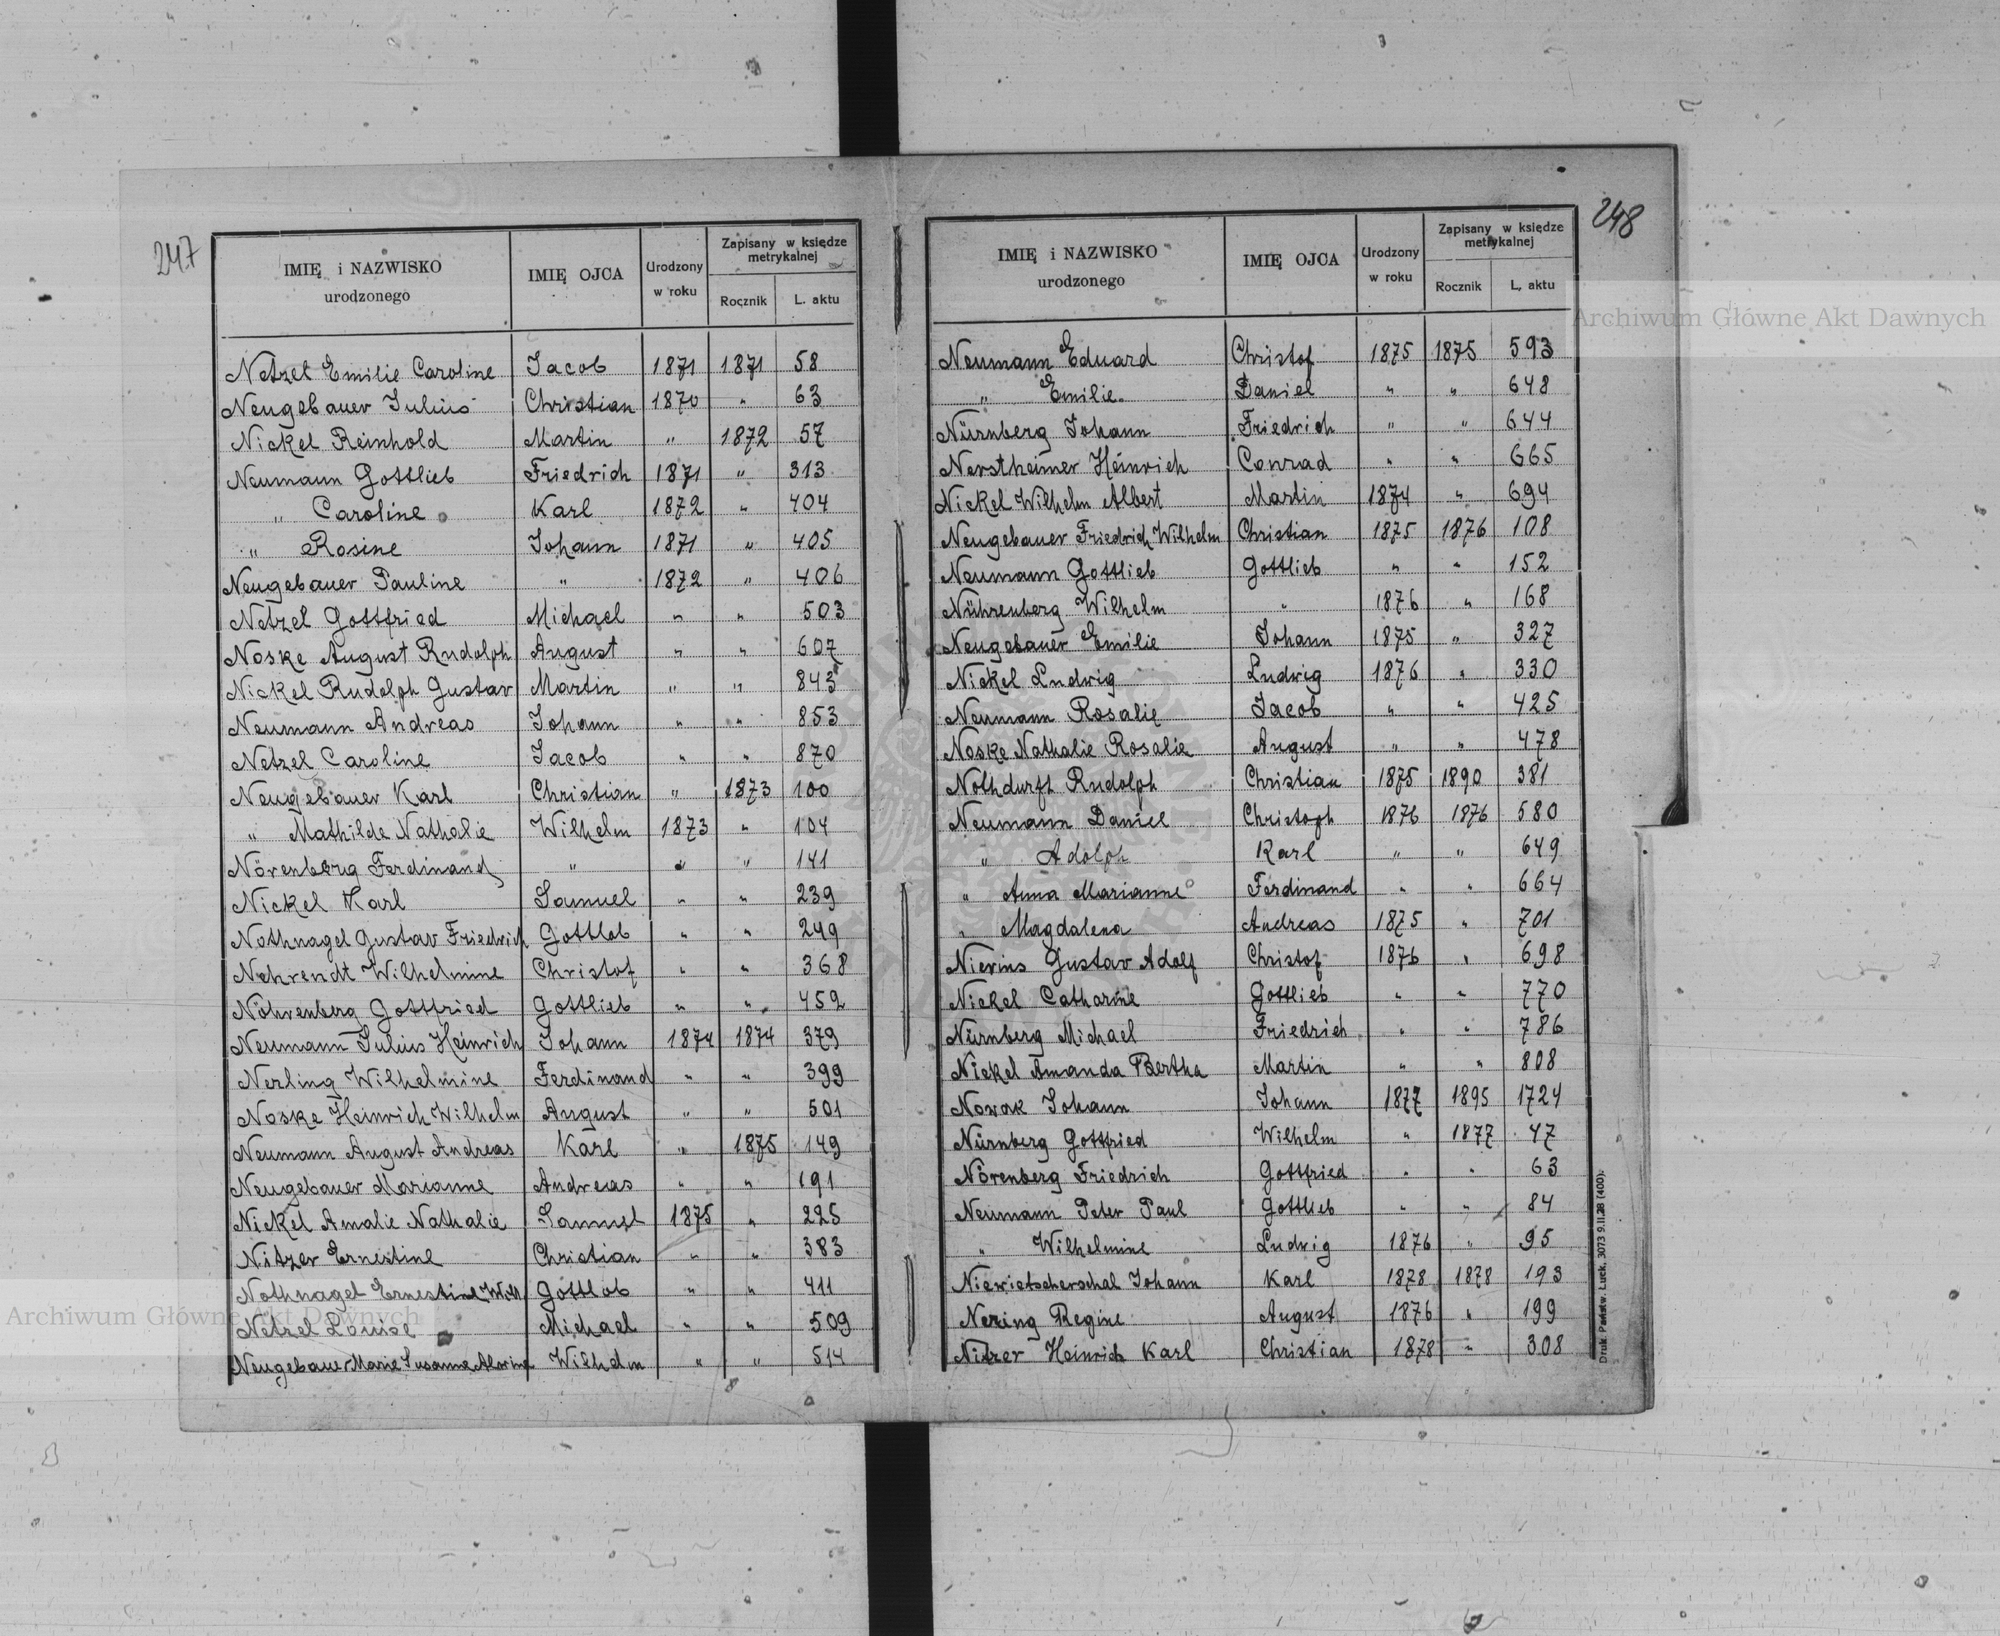 247
IMIĘ i NAZWISKO urodzonego | IMIĘ OJCA | Urodzony w roku | Zapisany w księdze metrykalnej
Rocznik | L. aktu
Netzel Emilie Caroline | Jacob | 1871 | 1871 | 58
Neugebauer Julius | Christian | 1870 | " | 63
Nickel Reinhold | Martin | " | 1872 | 57
Neumann Gottlieb | Friedrich | 1871 | " | 313
" Caroline | Karl | 1872 | " | 404
" Rosine | Johann | 1871 | " | 405
Neugebauer Pauline | " | 1872 | " | 406
Netzel Gottfried | Michael | " | " | 503
Noske August Rudolph | August | " | " | 607
Nickel Rudolph Gustav | Martin | " | " | 843
Neumann Andreas | Johann | " | " | 853
Netzel Caroline | Jacob | " | " | 870
Neugebauer Karl | Christian | " | 1873 | 100
" Mathilde Nathalie | Wilhelm | 1873 | " | 104
Nörenberg Ferdinand | " | " | " | 141
Nickel Karl | Samuel | " | " | 239
Nothnagel Gustav Friedrich | Gottlob | " | " | 249
Nehrendt Wilhelmine | Christof | " | " | 368
Nöhrenberg Gottfried | Gottlieb | " | " | 452
Neumann Julius Heinrich | Johann | 1874 | 1874 | 379
Nerling Wilhelmine | Ferdinand | " | " | 399
Noske Heinrich Wilhelm | August | " | " | 501
Neumann August Andreas | Karl | " | 1875 | 149
Neugebauer Marianne | Andreas | " | " | 191
Nickel Amalie Nathalie | Samuel | 1875 | " | 225
Nitzer Ernestine | Christian | " | " | 383
Nothnagel Ernestine Wilh | Gottlob | " | " | 411
Netzel Louise | Michael | " | " | 509
Neugebauer Marie Susanne | Wilhelm | " | " | 514
248
IMIĘ i NAZWISKO urodzonego | IMIĘ OJCA | Urodzony w roku | Zapisany w księdze metrykalnej
Rocznik | L. aktu
Neumann Eduard | Christof | 1875 | 1875 | 593
" Emilie | Daniel | " | " | 648
Nürnberg Johann | Friedrich | " | " | 644
Nerstheimer Heinrich | Conrad | " | " | 665
Nickel Wilhelm Albert | Martin | 1874 | " | 694
Neugebauer Friedrich Wilhelm | Christian | 1875 | 1876 | 108
Neumann Gottlieb | Gottlieb | " | " | 152
Nührenberg Wilhelm | " | 1876 | " | 168
Neugebauer Emilie | Johann | 1875 | " | 327
Nickel Ludwig | Ludwig | 1876 | " | 330
Neumann Rosalie | Jacob | " | " | 425
Noske Nathalie Rosalie | August | " | " | 478
Nothdurft Rudolph | Christian | 1875 | 1890 | 381
Neumann Daniel | Christoph | 1876 | 1876 | 580
" Adolph | Karl | " | " | 649
" Anna Marianne | Ferdinand | " | " | 664
" Magdalena | Andreas | 1875 | " | 701
Nierins Gustav Adolf | Christof | 1876 | " | 698
Nickel Catharine | Gottlieb | " | " | 770
Nürnberg Michael | Friedrich | " | " | 786
Nickel Amanda Bertha | Martin | " | " | 808
Nowak Johann | Johann | 1877 | 1895 | 1724
Nürnberg Gottfried | Wilhelm | " | 1877 | 47
Nörenberg Friedrich | Gottfried | " | " | 63
Neumann Peter Paul | Gottlieb | " | " | 84
" Wilhelmine | Ludwig | 1876 | " | 95
Niewietscherschal Johann | Karl | 1878 | 1878 | 193
Nering Regine | August | 1876 | " | 199
Nitzer Heinrich Karl | Christian | 1878 | " | 308
Druk. Państw. Łuck, 3073 9.II.28 (400).
Archiwum Główne Akt Dawnych
Archiwum Główne Akt Dawnych